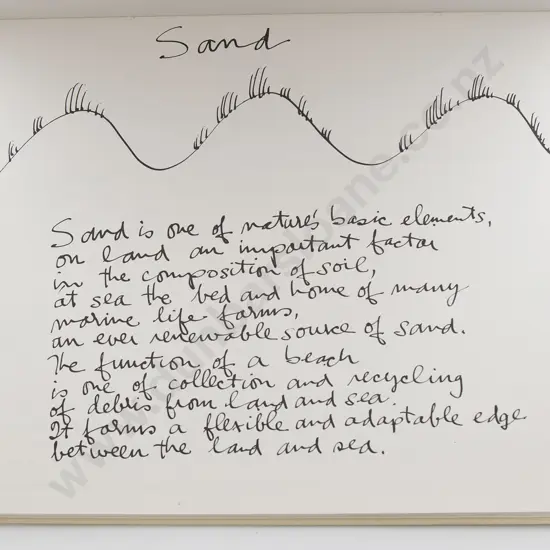 Sand
Sand is one of nature's basic elements,
on land an important factor
in the composition of soil,
at sea the bed and home of many
marine life forms,
an ever renewable source of sand.
The function of a beach
is one of collection and recycling
of debris from land and sea.
It forms a flexible and adaptable edge
between the land and sea.